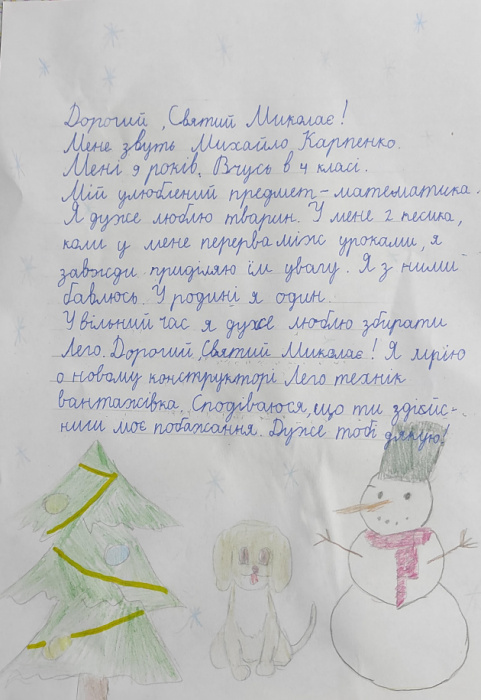 Дорогий, Святий Миколає!
Мене звуть Михайло Карпенко.
Мені 9 років. Вчусь в 4 класі.
Мій улюблений предмет - математика.
Я дуже люблю тварин. У мене 2 песика,
коли у мене перерва між уроками, я
завжди приділяю їм увагу. Я з ними
бавлюсь. У родині я один.
У вільний час я дуже люблю збирати
Лего. Дорогий, Святий Миколає! Я мрію
о новому конструкторі Лего технік
вантажівка. Сподіваюся, що ти здійс-
ниш моє побажання. Дуже тобі дякую!